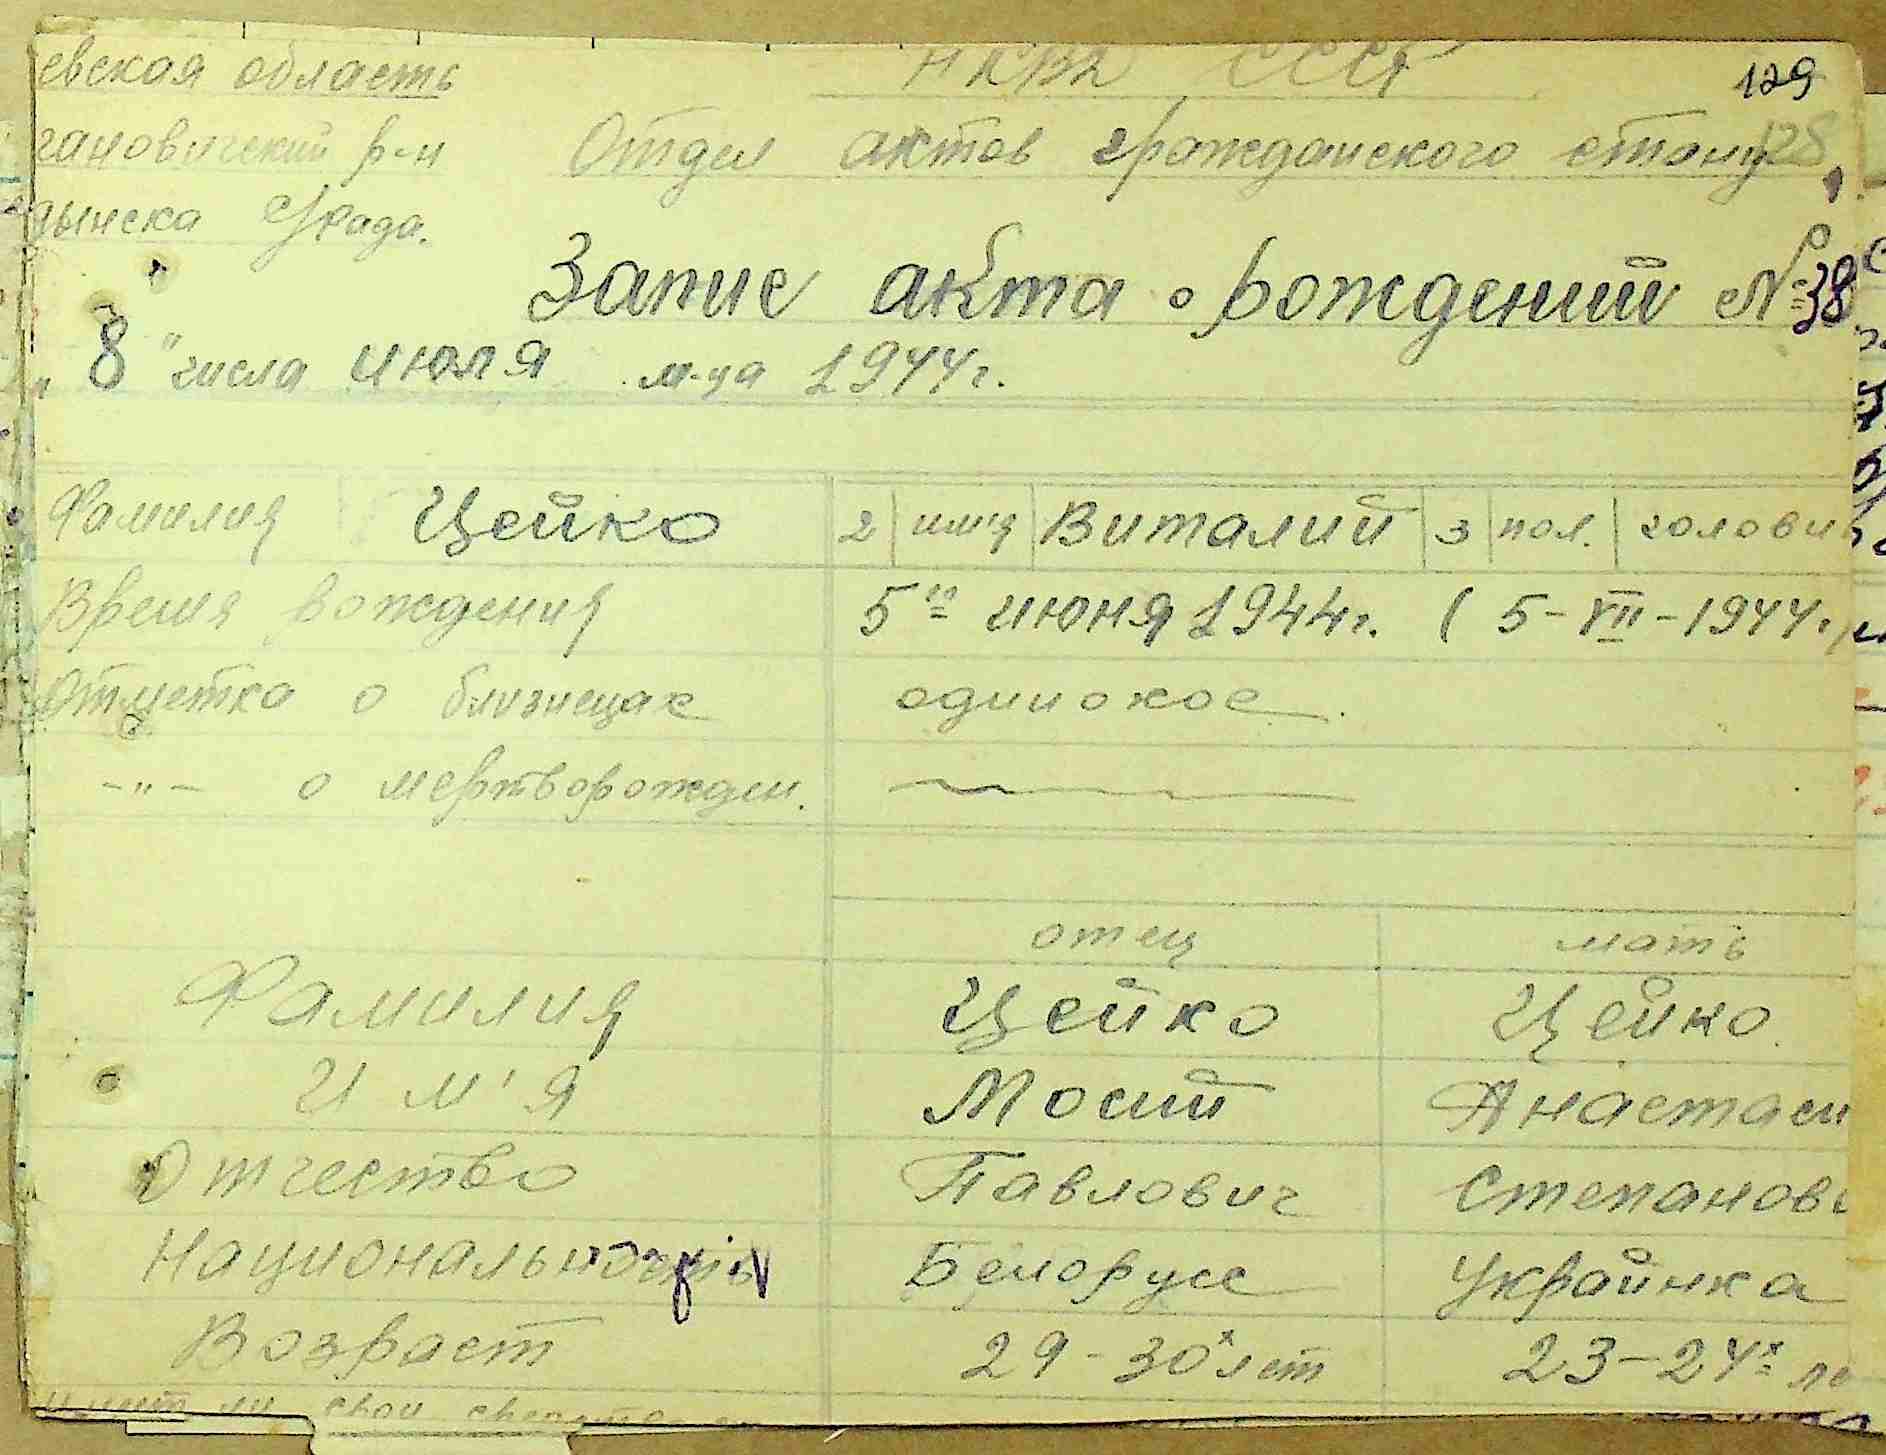 евская область НКВД СССР 129
гановический р-н Отдел актов гражданского стану 128
дынска с/рада.
Запис акта о рождении №38
"8" числа июля м-ца 1944г.
Фамилия Цейко 2 им'я Виталий 3 пол. чолови
Время рождения 5го июня 1944г. (5-VII-1944г.
Отметка о близнецах одинокое.
-"- о мертворожден.
отец мать
Фамилия Цейко Цейко
Им'я Мосий Анастаси
Отчество Павлович Степанов
Национальность Белорусс Украинка
Возраст 29-30х лет 23-24х ле
свои